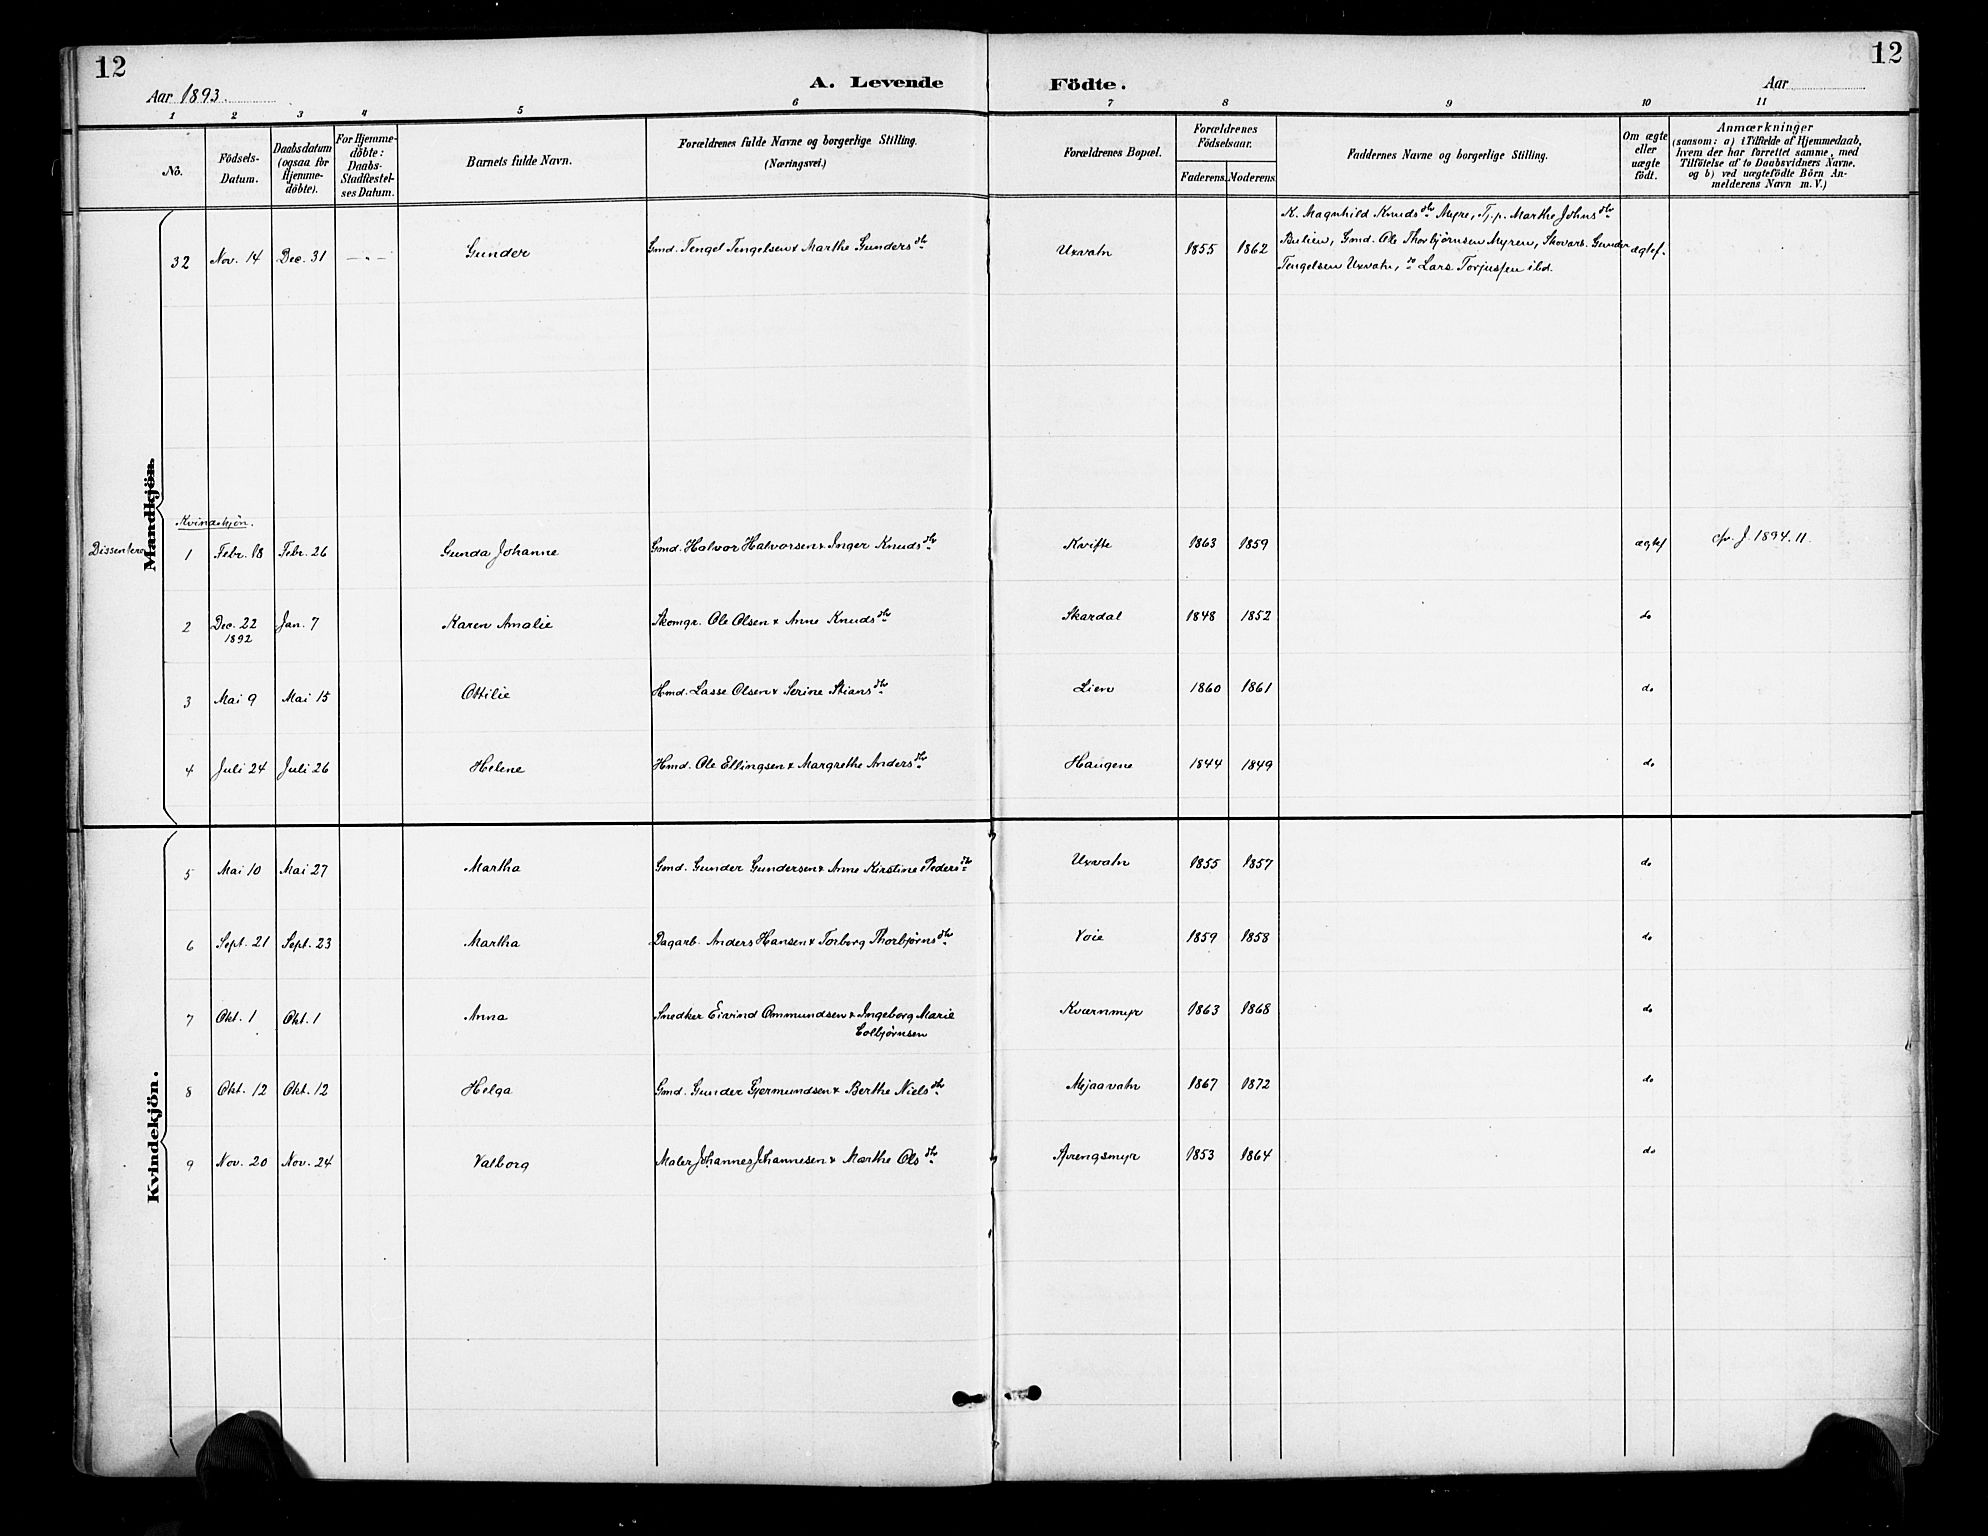 12
12
A. Levende Födte.
Aar 1893.
Aar
1 2 3 4 5 6 7 8 9 10 11
No.
Födsels-Datum.
Daabsdatum (ogsaa for Hjemme-döbte).
For Hjemme-döbte: Daabs-Stadfæstel-ses Datum.
Barnets fulde Navn.
Forældrenes fulde Navne og borgerlige Stilling.
(Næringsvei.)
Forældrenes Bopæl.
Forældrenes Födselsaar.
Faderens. Moderens.
Faddernes Navne og borgerlige Stilling.
Om ægte eller uægte födt.
Anmærkninger
(saasom: a) i Tilfælde af Hjemmedaab,
hvem der har forrettet samme, med
Tilföielse af to Daabsvidners Navne.
og b) ved uægtefödte Börn An-
melderens Navn m. V.)
Mandkjön.
32 Nov. 14 Dec. 31 — „ — Gunder Gmd. Tengel Tengelsen & Marthe Gundersdtr Uxvatn 1855 1862 K. Magnhild Knudsdtr Myre, Tj.p. Marthe Johnsdtr
Bulien, Gmd. Ole Thorbjørnsen Myren, Skovarb. Gunder ægtef.
Tengelsen Uxvatn, do Lars Torjussen ibd.
Kvindekjøn.
Dissentere 1 Febr. 18 Febr. 26 Gunda Johanne Gmd. Halvor Halvorsen & Inger Knudsdtr Kvifte 1863 1859 ægtef cfr. J. 1894. 11.
2 Dec. 22 1892 Jan. 7 Karen Amalie Skomgr. Ole Olsen & Anne Knudsdtr Skardal 1848 1852 do
3 Mai 9 Mai 15 Ottilie Hmd. Lasse Olsen & Serine Stiansdtr Lien 1860 1861 do
4 Juli 24 Juli 26 Helene Hmd. Ole Ellingsen & Margrethe Andersdtr Haugene 1844 1849 do
Kvindekjön.
5 Mai 10 Mai 27 Martha Gmd. Gunder Gundersen & Anne Kirstine Pedersdtr Uxvatn 1855 1857 do
6 Sept. 21 Sept. 23 Martha Dagarb. Anders Hansen & Torborg Thorbjørnsdtr Voie 1859 1858 do
7 Okt. 1 Okt. 1 Anna Snedker Eivind Ommundsen & Ingeborg Marie Kværnmyr 1863 1868 do
Colbjørnsen
8 Okt. 12 Okt. 12 Helga Gmd. Gunder Gjermundsen & Berthe Nielsdtr Mjaavatn 1867 1872 do
9 Nov. 20 Nov. 24 Valborg Maler Johannes Johannesen & Marthe Olsdtr Sprengsmyr 1853 1864 do